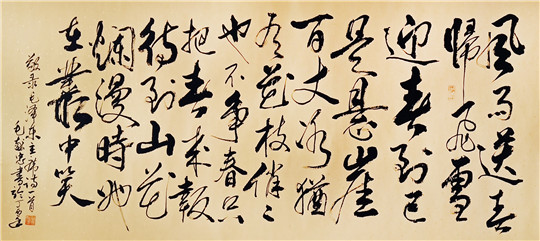 風雨送春
歸飛雪
迎春到已
是懸崖
百丈冰猶
有花枝俏〻
也不爭春只
把春來報
待到山花
爛漫時她
在叢中笑
敬录毛澤东主席诗一首
書於丁亥